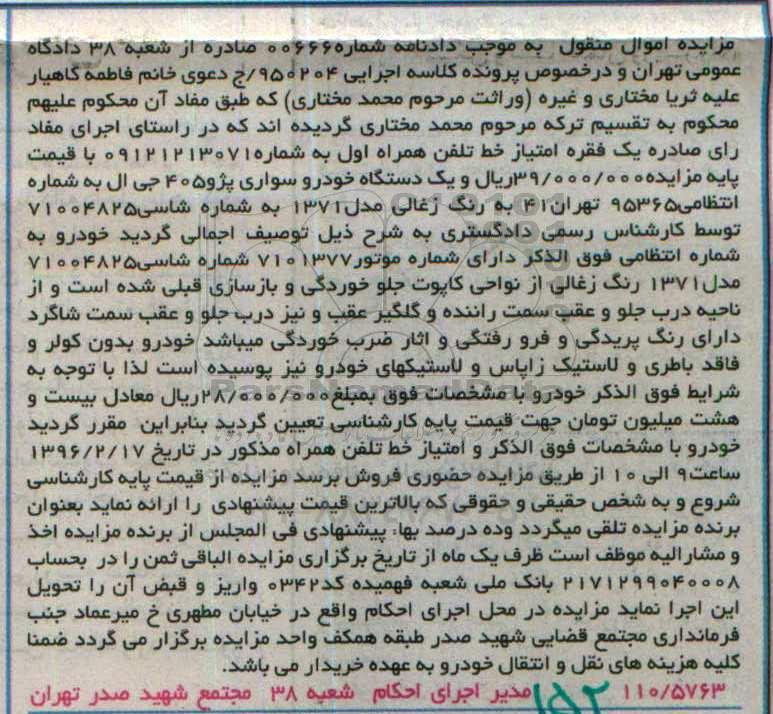 مزایده اموال منقول به موجب دادنامه شماره۰۰۶۶۶ صادره از شعبه ۳۸ دادگاه
عمومی تهران و درخصوص پرونده کلاسه اجرایی ۹۵۰۲۰۴/ج دعوی خانم فاطمه کاهیار
علیه ثریا مختاری و غیره (وراثت مرحوم محمد مختاری) که طبق مفاد آن محکوم علیهم
محکوم به تقسیم ترکه مرحوم محمد مختاری گردیده اند که در راستای اجرای مفاد
رای صادره یک فقره امتیاز خط تلفن همراه اول به شماره۰۹۱۲۱۲۱۳۰۷۱ با قیمت
پایه مزایده۳۹/۰۰۰/۰۰۰ریال و یک دستگاه خودرو سواری پژو۴۰۵ جی ال به شماره
انتظامی۹۵۳۶۵ تهران۴۱ به رنگ زغالی مدل۱۳۷۱ به شماره شاسی۷۱۰۰۴۸۲۵
توسط کارشناس رسمی دادگستری به شرح ذیل توصیف اجمالی گردید خودرو به
شماره انتظامی فوق الذکر دارای شماره موتور۷۱۰۱۳۷۷ شماره شاسی۷۱۰۰۴۸۲۵
مدل۱۳۷۱ رنگ زغالی از نواحی کاپوت جلو خوردگی و بازسازی قبلی شده است و از
ناحیه درب جلو و عقب سمت راننده و گلگیر عقب و نیز درب جلو و عقب سمت شاگرد
دارای رنگ پریدگی و فرو رفتگی و اثار ضرب خوردگی میباشد خودرو بدون کولر و
فاقد باطری و لاستیک زاپاس و لاستیکهای خودرو نیز پوسیده است لذا با توجه به
شرایط فوق الذکر خودرو با مشخصات فوق بمبلغ۲۸/۰۰۰/۰۰۰ریال معادل بیست و
هشت میلیون تومان جهت قیمت پایه کارشناسی تعیین گردید بنابراین مقرر گردید
خودرو با مشخصات فوق الذکر و امتیاز خط تلفن همراه مذکور در تاریخ ۱۳۹۶/۲/۱۷
ساعت۹ الی ۱۰ از طریق مزایده حضوری فروش برسد مزایده از قیمت پایه کارشناسی
شروع و به شخص حقیقی و حقوقی که بالاترین قیمت پیشنهادی را ارائه نماید بعنوان
برنده مزایده تلقی میگردد وده درصد بهاء پیشنهادی فی المجلس از برنده مزایده اخذ
و مشارالیه موظف است ظرف یک ماه از تاریخ برگزاری مزایده الباقی ثمن را در بحساب
۲۱۷۱۲۹۹۰۴۰۰۰۸ بانک ملی شعبه فهمیده کد۰۳۴۲ واریز و قبض آن را تحویل
این اجرا نماید مزایده در محل اجرای احکام واقع در خیابان مطهری خ میرعماد جنب
فرمانداری مجتمع قضایی شهید صدر طبقه همکف واحد مزایده برگزار می گردد ضمنا
کلیه هزینه های نقل و انتقال خودرو به عهده خریدار می باشد.
۱۱۰/۵۷۶۳ مدیر اجرای احکام شعبه ۳۸ مجتمع شهید صدر تهران
۱۵۲
ParsNamadData